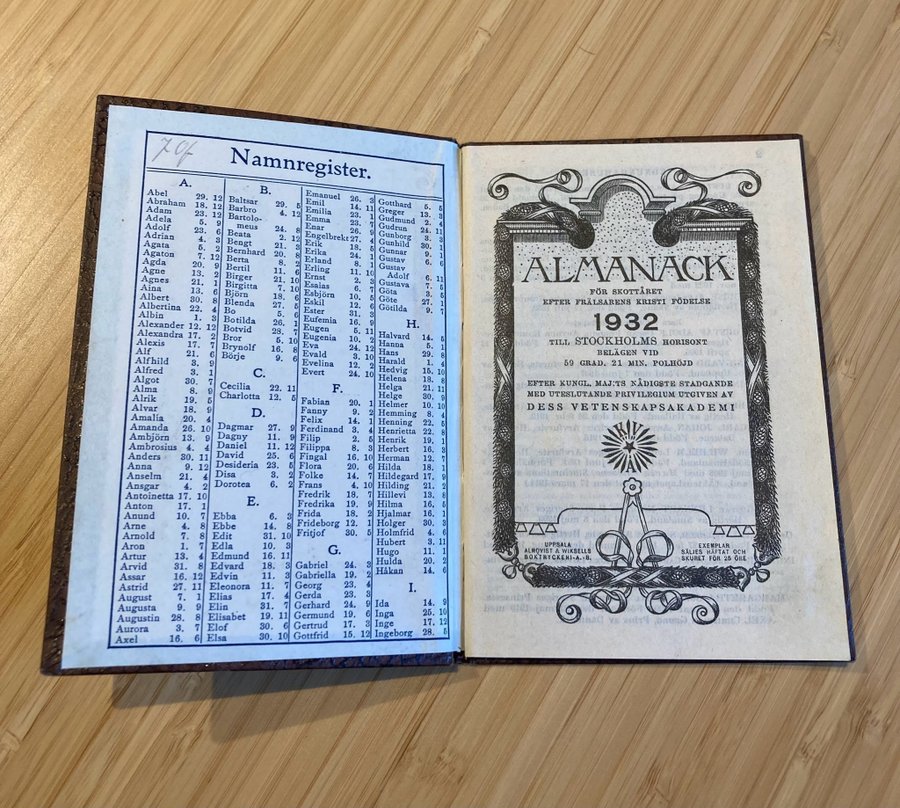 Namnregister.
A.
Abel 29. 12
Abraham 18. 12
Adam 23. 12
Adela 5. 9
Adolf 23. 6
Adrian 4. 3
Agata 5. 2
Agaton 7. 12
Agda 20. 9
Agne 13. 2
Agnes 21. 1
Aina 13. 6
Albert 30. 8
Albertina 22. 4
Albin 1. 3
Alexander 12. 12
Alexandra 17. 2
Alexis 17. 7
Alf 21. 6
Alfhild 3. 9
Alfred 3. 1
Algot 30. 7
Alma 8. 9
Alrik 19. 5
Alvar 18. 9
Amalia 20. 4
Amanda 26. 10
Ambjörn 13. 9
Ambrosius 4. 4
Anders 30. 11
Anna 9. 12
Anselm 21. 4
Ansgar 4. 2
Antoinetta 17. 10
Anton 17. 1
Anund 10. 7
Arne 4. 8
Arnold 7. 8
Aron 1. 7
Artur 13. 4
Arvid 31. 8
Assar 16. 12
Astrid 27. 11
August 7. 1
Augusta 9. 9
Augustin 28. 8
Aurora 3. 7
Axel 16. 6
B.
Baltsar 29. 5
Barbro 4. 12
Bartolo-
meus 24. 8
Beata 2. 12
Bengt 21. 3
Bernhard 20. 8
Berta 8. 2
Bertil 11. 6
Birger 21. 10
Birgitta 7. 10
Björn 18. 6
Blenda 27. 5
Bo 5. 6
Botilda 26. 1
Botvid 28. 7
Bror 5. 10
Brynolf 16. 8
Börje 9. 6
C.
Cecilia 22. 11
Charlotta 12. 5
D.
Dagmar 27. 9
Dagny 11. 9
Daniel 11. 12
David 25. 6
Desideria 23. 5
Disa 3. 2
Dorotea 6. 2
E.
Ebba 6. 3
Ebbe 14. 8
Edit 31. 10
Edla 10. 3
Edmund 16. 11
Edvard 18. 3
Edvin 11. 3
Eleonora 11. 7
Elias 17. 4
Elin 31. 7
Elisabet 19. 11
Elof 30. 6
Elsa 30. 10
Emanuel 26. 3
Emil 14. 11
Emilia 23. 1
Emma 23. 7
Enar 26. 9
Engelbrekt 27. 4
Erik 18. 5
Erika 24. 1
Erland 8. 1
Erling 11. 10
Ernst 2. 3
Esaias 6. 7
Esbjörn 10. 5
Eskil 12. 6
Ester 31. 3
Eufemia 16. 9
Eugen 5. 11
Eugenia 10. 2
Eva 24. 12
Evald 3. 10
Evelina 12. 2
Evert 24. 10
F.
Fabian 20. 1
Fanny 9. 2
Felix 14. 1
Ferdinand 3. 4
Filip 2. 5
Filippa 8. 3
Fingal 16. 10
Flora 20. 6
Folke 14. 7
Frans 4. 10
Fredrik 18. 7
Fredrika 19. 9
Frida 18. 2
Frideborg 12. 1
Fritjof 30. 5
G.
Gabriel 24. 3
Gabriella 19. 2
Georg 23. 4
Gerda 23. 3
Gerhard 24. 9
Germund 19. 6
Gertrud 17. 3
Gottfrid 15. 12
Gotthard 5. 5
Greger 13. 3
Gudmund 2. 4
Gudrun 24. 11
Gunborg 3. 3
Gunhild 30. 1
Gunnar 9. 1
Gustav 6. 6
Gustav
Adolf 6. 11
Gustava 7. 5
Göta 3. 5
Göte 27. 1
Götilda 9. 7
H.
Halvard 14. 5
Hanna 5. 1
Hans 29. 8
Harald 1. 4
Hedvig 15. 10
Helena 18. 8
Helga 21. 11
Helge 30. 9
Helmer 10. 10
Hemming 8. 4
Henning 22. 5
Henrietta 22. 8
Henrik 19. 1
Herbert 16. 3
Herman 12. 7
Hilda 18. 1
Hildegard 17. 9
Hilding 21. 2
Hillevi 13. 8
Hilma 16. 5
Hjalmar 16. 1
Holger 30. 3
Holmfrid 4. 6
Hubert 3. 11
Hugo 11. 1
Hulda 20. 2
Håkan 14. 6
I.
Ida 14. 9
Inga 25. 10
Inge 17. 12
Ingeborg 28. 5
ALMANACK
FÖR SKOTTÅRET
EFTER FRÄLSARENS KRISTI FÖDELSE
1932
TILL STOCKHOLMS HORISONT
BELÄGEN VID
59 GRAD. 21 MIN. POLHÖJD
EFTER KUNGL. MAJ:TS NÅDIGSTE STADGANDE
MED UTESLUTANDE PRIVILEGIUM UTGIVEN AV
DESS VETENSKAPSAKADEMI
UPPSALA
ALMQVIST & WIKSELLS
BOKTRYCKERI-A.-B.
EXEMPLAR
SÄLJES HÄFTAT OCH
SKURET FÖR 25 ÖRE